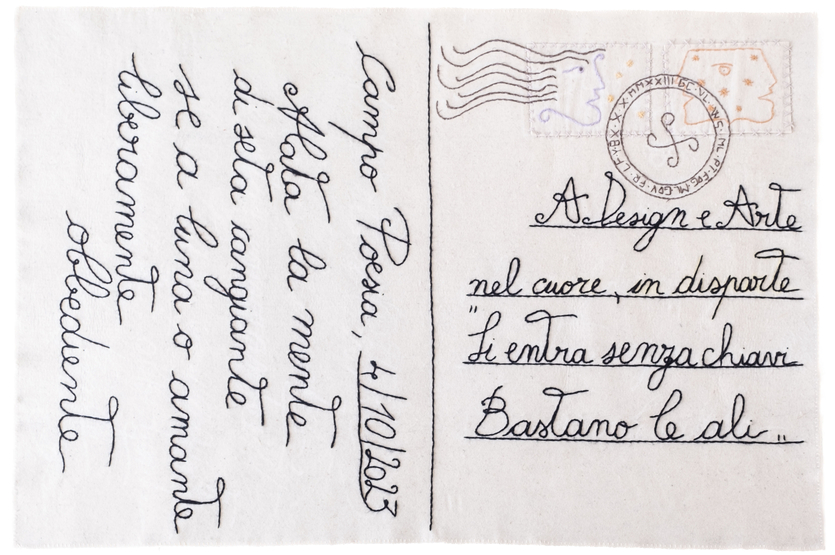 Campo Poesia, 4/10/2023
Alata la mente
di seta cangiante
se a luna o amante
liberamente
obbediente
A Design e Arte
nel cuore, in disparte
"Si entra senza chiavi
Bastano le ali"